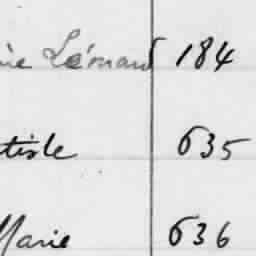 ie Léonard 184
tiste 635
Marie 636